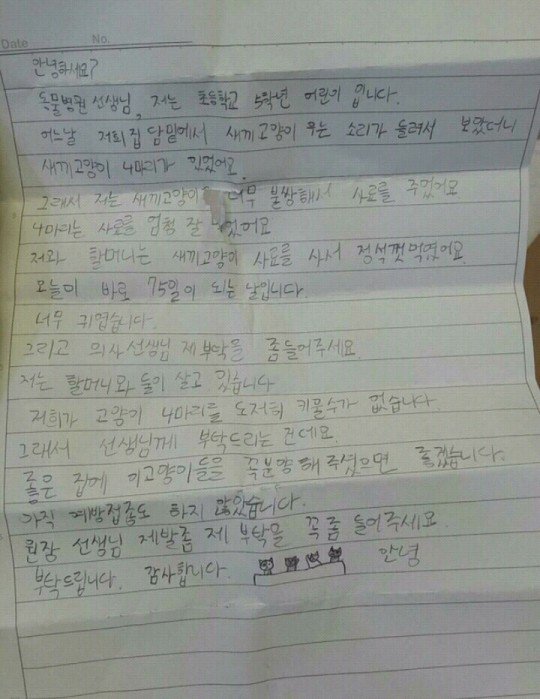 Date No.
안녕하세요?
동물병원 선생님, 저는 초등학교 5학년 어린이 입니다.
어느날 저희집 담밑에서 새끼고양이 우는 소리가 들려서 보았더니
새끼고양이 4마리가 있었어요.
그래서 저는 새끼고양이 너무 불쌍해서 사료를 주었어요
4마리는 사료를 엄청 잘 었어요
저와 할머니는 새끼고양이 사료를 사서 정석껏먹였어요
오늘이 바로 75일이 되는 날입니다.
너무 귀엽습니다.
그리고 의사선생님 제부탁을 좀들어주세요
저는 할머니와 둘이 살고 있습니다
저희가 고양이 4마리를 도저히 키울수가 없습니다
그래서 선생님께 부탁드리는 건데요.
좋은 집에 이고양이들을 꼭분양해주셨으면 좋겠습니다.
아직 예방접종도 하지 않았습니다.
원장 선생님 제발좀 제 부탁을 꼭좀 들어주세요
부탁드립니다. 감사합니다. 안녕